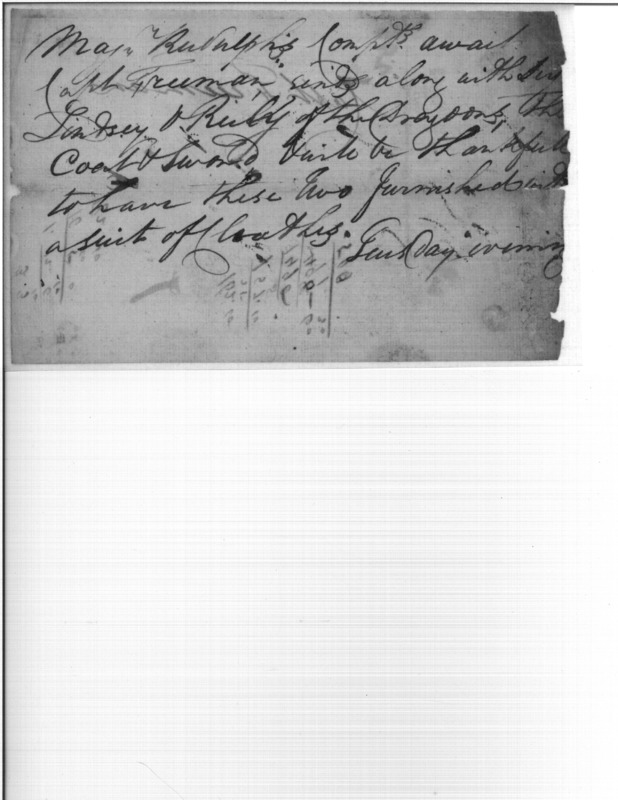 Majr. Rudulph's Compts. await
Capt Freeman, sends along with
Lindsey & Reily of the Dragoons, the
Coat & Sword & will be thankfull
to have these two furnished with
a suit of Cloathes. Tuesday evening